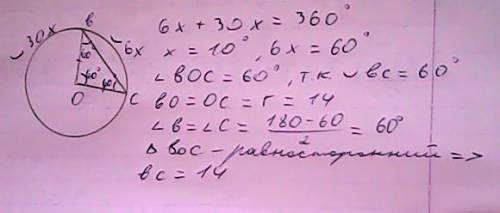 ◡30x
B
◡6x
60°
60°
60°
O
C
6x + 30x = 360°
x = 10°, 6x = 60°
∠BOC = 60°, т.к. ◡BC = 60°
BO = OC = r = 14
∠B = ∠C = (180-60)/2 = 60°
Δ BOC - равносторонний =>
BC = 14